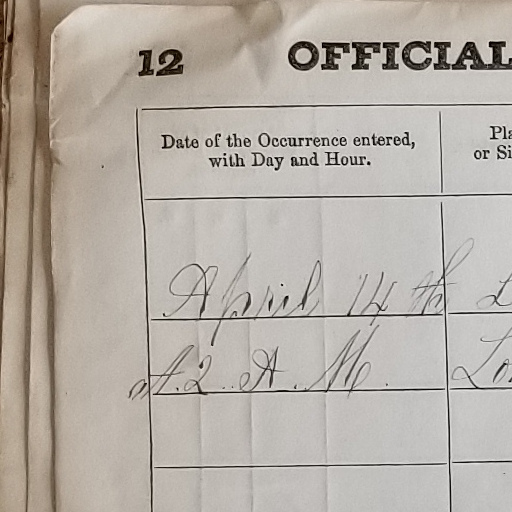 12 OFFICIAL
Date of the Occurrence entered,
with Day and Hour.
Pla
or Si
April 14th
at 2 A. M.